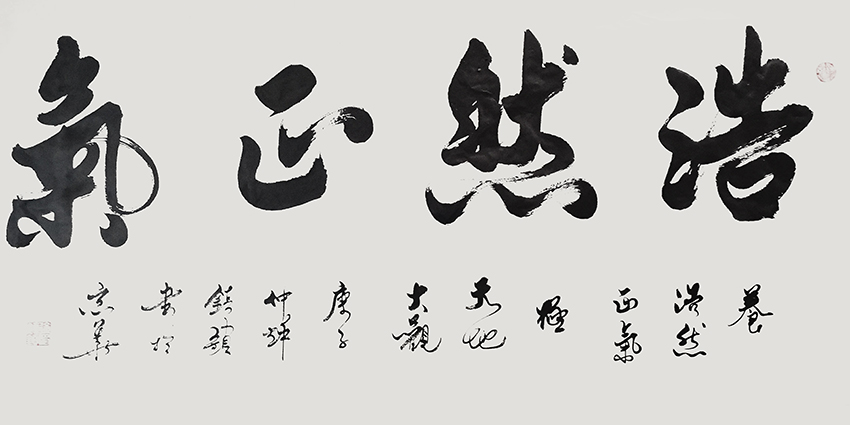 浩然正氣
養
浩然
正氣
極
天地
大觀
庚子
仲秋
書於
京華